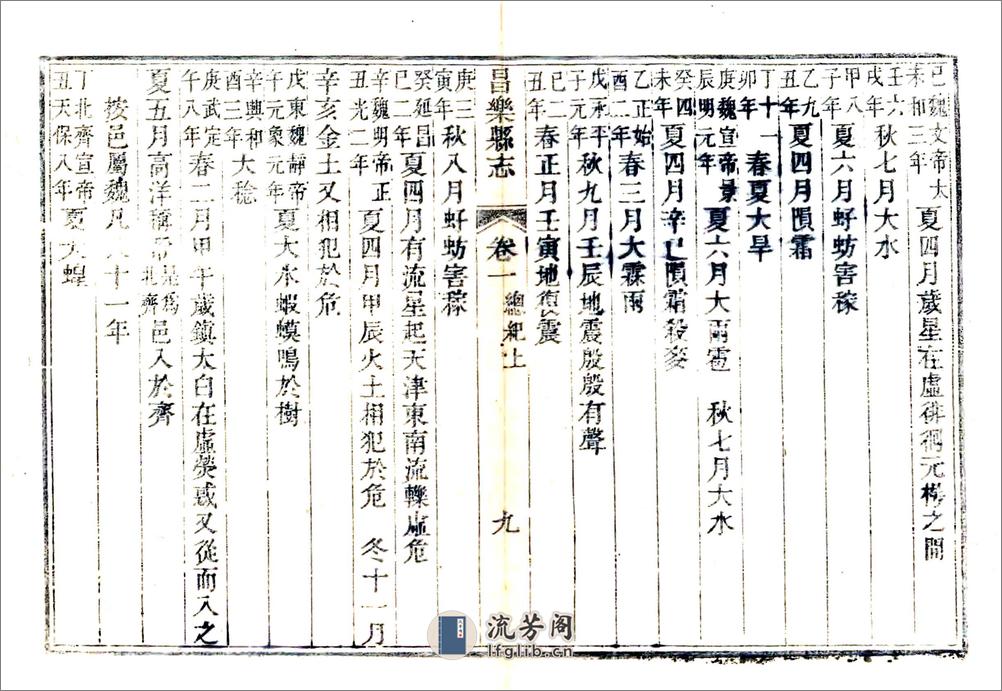 己未魏文帝太和三年 夏四月歲星在虛徘徊元枵之間
壬戌六年 秋七月大水
甲子八年 夏六月虸蚄害稼
乙丑九年 夏四月隕霜
丁卯十一年 春夏大旱
庚辰魏宣帝景明元年 夏六月大雨雹 秋七月大水
癸未四年 夏四月辛巳隕霜殺麥
乙酉正始二年 春三月大霖雨
戊子永平元年 秋九月壬辰地震殷殷有聲
己丑二年 春正月壬寅地復震
昌樂縣志 卷一 總紀上 九
庚寅三年 秋八月虸蚄害稼
癸巳延昌二年 夏四月有流星起天津東南流轢虛危
辛丑魏明帝正光二年 夏四月甲辰火土相犯於危 冬十一月
辛亥金土又相犯於危
戊午東魏靜帝元象元年 夏大水蝦蟆鳴於樹
辛酉興和三年 大稔
庚午武定八年 春二月甲午歲鎮太白在虛熒惑又從而入之
夏五月高洋稱帝是爲北齊邑入於齊
按邑屬魏凡十一年
丁丑北齊宣帝天保八年 夏大蝗
流芳阁
lfglib.cn